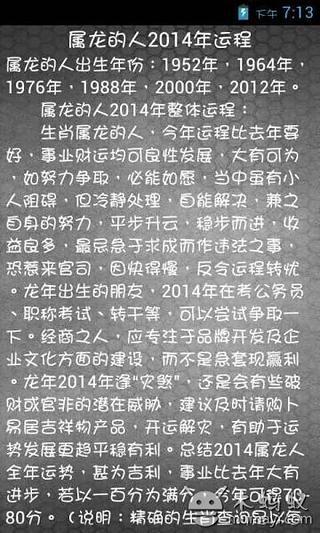 下午 7:13
属龙的人2014年运程
属龙的人出生年份：1952年，1964年，
1976年，1988年，2000年，2012年。
属龙的人2014年整体运程：
生肖属龙的人，今年运程比去年要
好，事业财运均可良性发展，大有可为
，如努力争取，必能如愿，当中虽有小
人阻碍，但冷静处理，自能解决，兼之
自身的努力，平步升云，稳步而进，收
益良多，最忌急于求成而作违法之事，
恐惹来官司，因快得慢，反令运程转忧
。龙年出生的朋友，2014年在考公务员
、职称考试、转干等，可以尝试争取一
下。经商之人，应专注于品牌开发及企
业文化方面的建设，而不是急套现赢利
。龙年2014年逢“灾煞”，还是会有些破
财或官非的潜在威胁，建议及时请购卜
易居吉祥物产品，开运解灾，有助于运
势发展更趋平稳有利。总结2014属龙人
全年运势，甚为吉利，事业比去年大有
进步，若以一百分为满分，今年可得70-
80分。（说明：精确的生肖查询以每